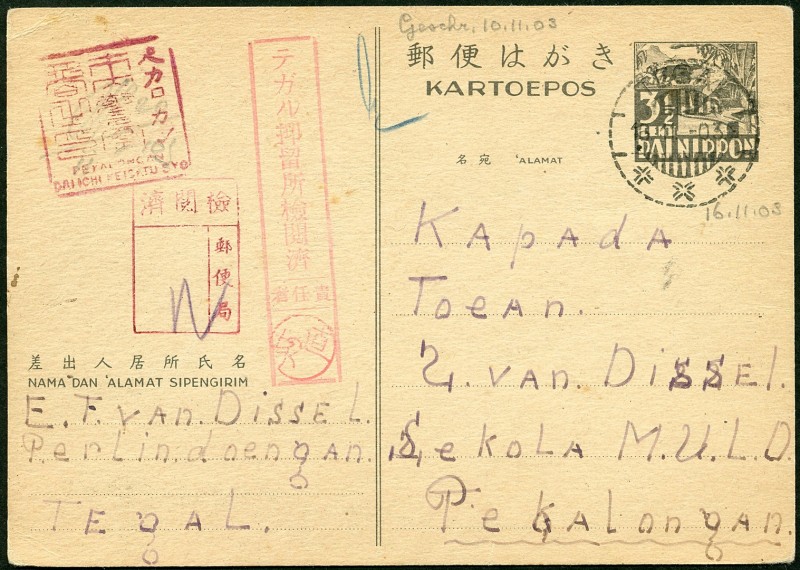 Geschr. 10.11.03
郵便はがき
KARTOEPOS
3½
DAI NIPPON
名宛 'ALAMAT
16.11.03
KAPADA
TOEAN.
Z. VAN DISSEL.
SEKOLA M.U.L.O.
PEKALONGAN.
ペカロンガン
PEKALONGAN
DAI ICHI KEISATU SYO
テガル郵留所検閲済
責任者
檢閲濟
郵便局
差出人居所氏名
NAMA DAN 'ALAMAT SIPENGIRIM
E. T. VAN. DISSEL.
Perlindoengan.
TEGAL.